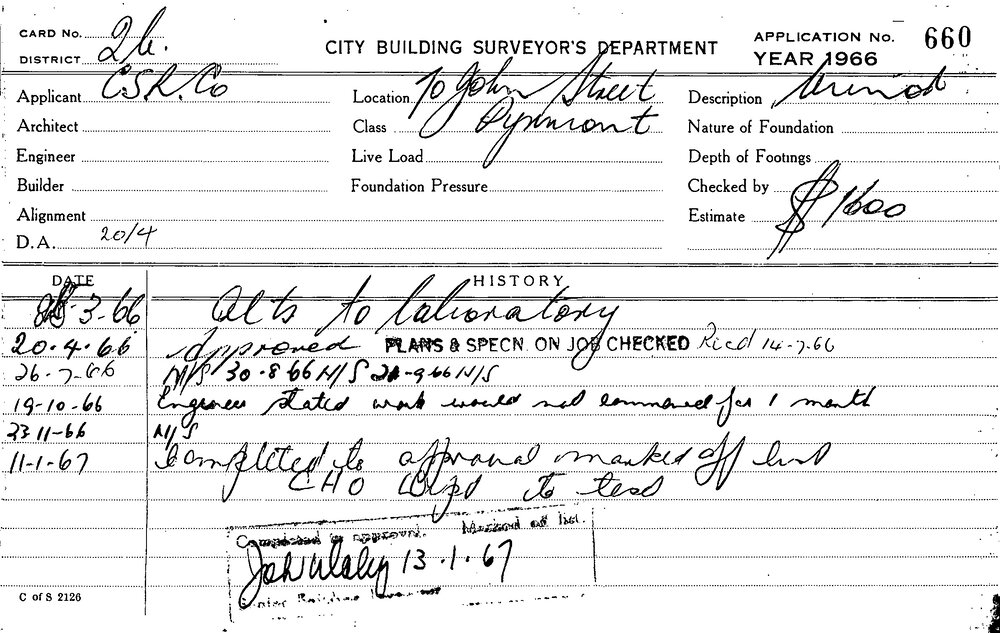 CARD No. 26.
DISTRICT
CITY BUILDING SURVEYOR'S DEPARTMENT
APPLICATION No. 660
YEAR 1966
Applicant C.S.R. Co
Location 70 John Street
Description
Architect
Class Pyrmont
Nature of Foundation
Engineer
Live Load
Depth of Footings
Builder
Foundation Pressure
Checked by
Alignment
Estimate $1600
D.A. 20/4
DATE HISTORY
3-66 Alts to laboratory
20.4.66 Approved PLANS & SPECN. ON JOB CHECKED Recd 14-7-66
26-7-66 N/S 30-8 66 N/S -9 66 N/S
19-10-66 Engineer stated work would not commenced for 1 month
23 11-66 N/S
11-1-67 Completed to approval marked off list
CHO
Completed to approval. Marked off list.
13.1.67
C of S 2126